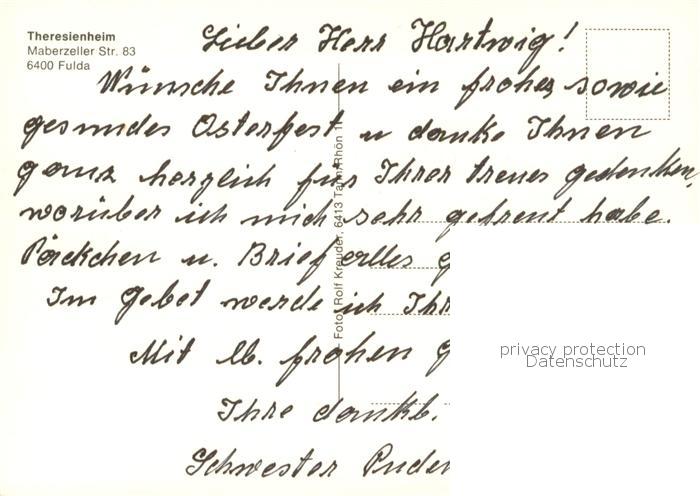 Theresienheim
Maberzeller Str. 83
6400 Fulda
Lieber Herr Hartwig!
Wünsche Ihnen ein frohes sowie
gesundes Osterfest u danke Ihnen
ganz herzlich für Ihrer treues gedenken,
worüber ich mich sehr gefreut habe.
Päckchen u. Brief alles g
Im gebet werde ich Ihr
Mit lb. frohen g
Ihre dankb.
Schwester
Foto: Rolf Kreuder, 6413 Tann/Rhön 1
privacy protection
Datenschutz